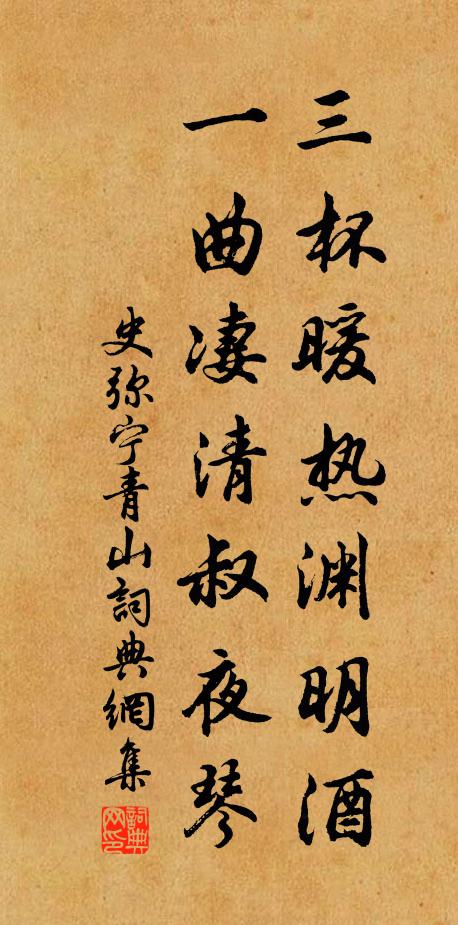 三杯暖热渊明酒
一曲凄清叔夜琴
史弥宁青山詞典網集
詞典网印